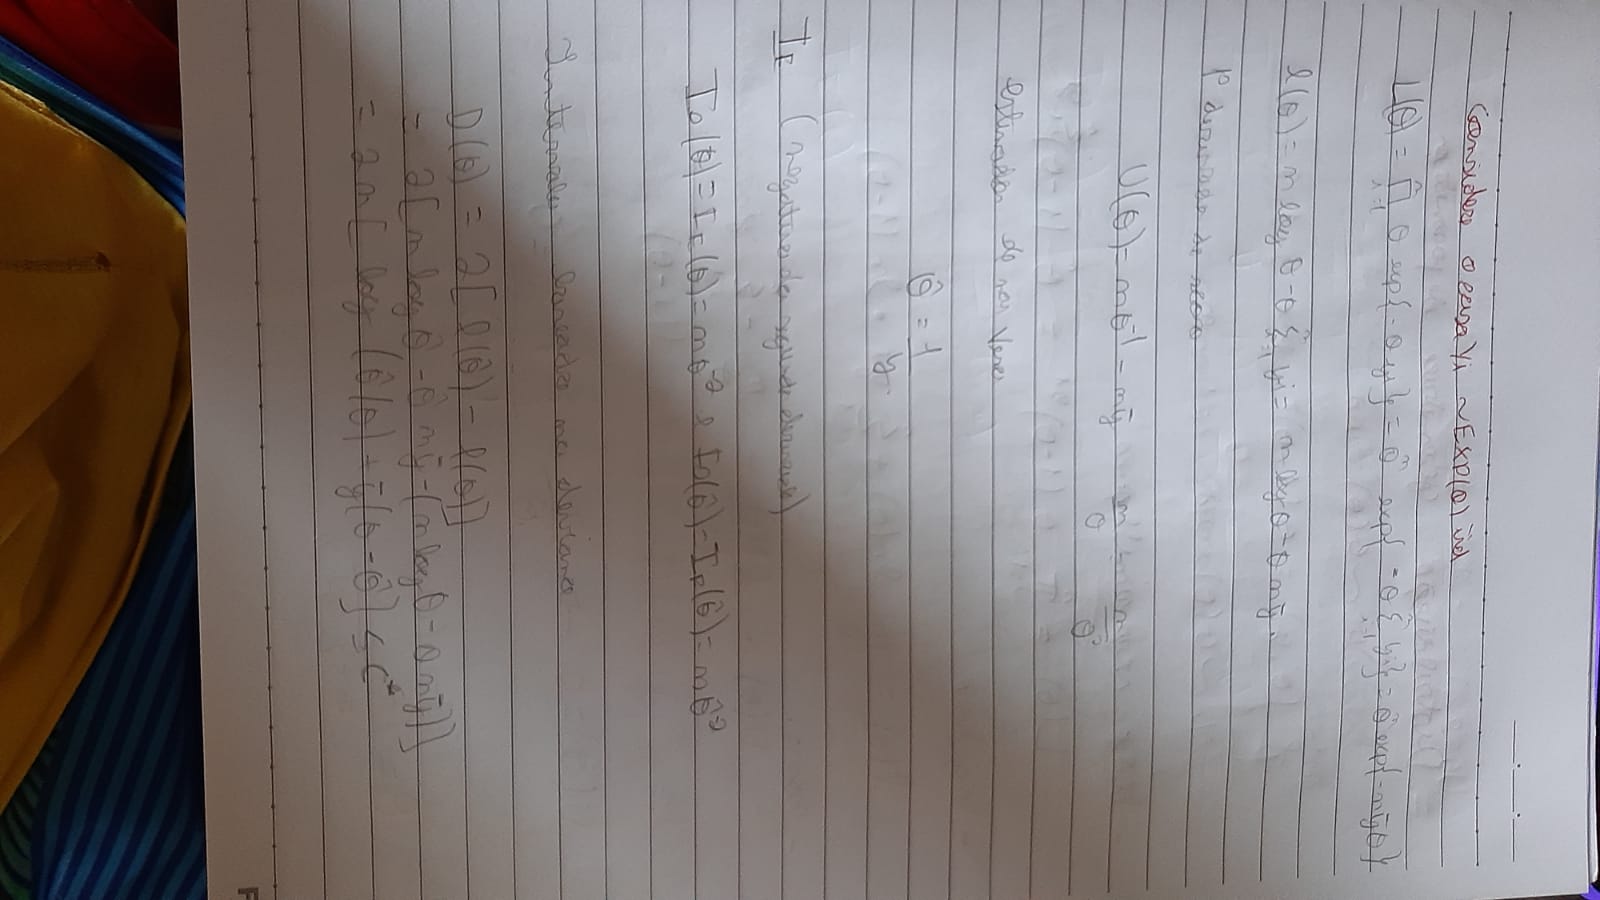 Considere o caso Yi ~ EXP(θ) iid
L(θ) = ∏ᵢ₌₁ⁿ θ exp{-θ yi} = θⁿ exp{-θ Σᵢ₌₁ⁿ yi} = θⁿ exp{-nȳθ}
l(θ) = n log θ - θ Σᵢ₌₁ⁿ yi = n log θ - θ nȳ.
1º derivada
U(θ) = nθ⁻¹ - nȳ n/θ = n/θ²
estimador de
θ̂ = 1/y
I_E (negativo da segunda derivada)
I_O(θ) = I_E(θ) = nθ⁻² e I_O(θ̂) = I_E(θ̂) = nθ̂⁻²
Intervalos baseado na deviance
D(θ) = 2[l(θ̂) - l(θ)]
= 2[n log θ̂ - θ̂ nȳ - (n log θ - θ nȳ)]
= 2n[log (θ̂/θ) + ȳ(θ - θ̂] ≤ C*